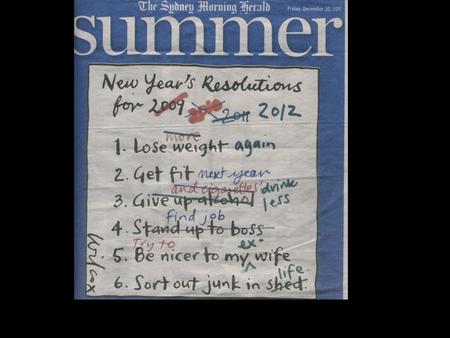 The Sydney Morning Herald
Friday, December 30, 2011
summer
New Year's Resolutions
for 2009 2011 2012
more
1. Lose weight again
2. Get fit next year
and cigarettes! drink
3. Give up alcohol less
find job
4. Stand up to boss
Try to ex-
5. Be nicer to my wife
life
6. Sort out junk in shed.
Wilcox